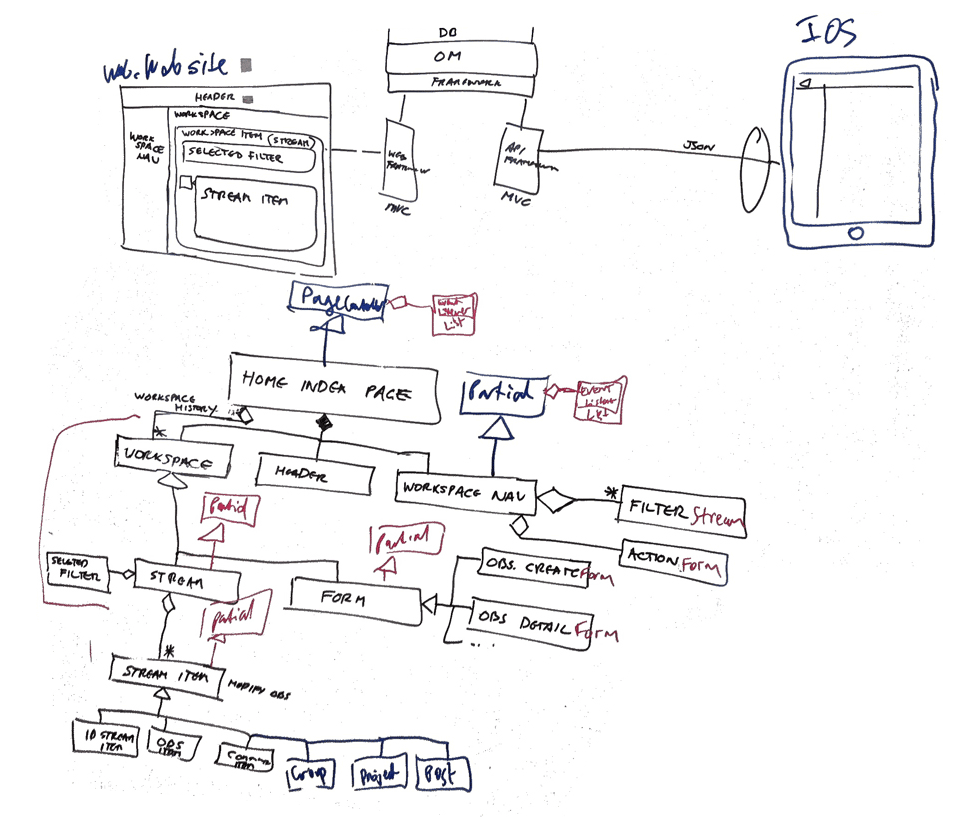 DB
OM
FRAMEWORK
IOS
Web. Web site
HEADER
WORKSPACE
WORKSPACE ITEM (STREAM)
SELECTED FILTER
WORK
SPACE
NAV
STREAM ITEM
WEB
MVC
API
MVC
JSON
PageController
List
HOME INDEX PAGE
Partial
EVENT
Listener
List
WORKSPACE
HISTORY
*
WORKSPACE
HEADER
WORKSPACE NAV
*
FILTER Stream
ACTION Form
Partial
Partial
SELECTED
FILTER
STREAM
FORM
OBS. CREATE Form
OBS DETAIL Form
...
partial
*
STREAM ITEM
MODIFY OBS
ID STREAM
ITEM
OBS
ITEM
ITEM
Group
Project
Post